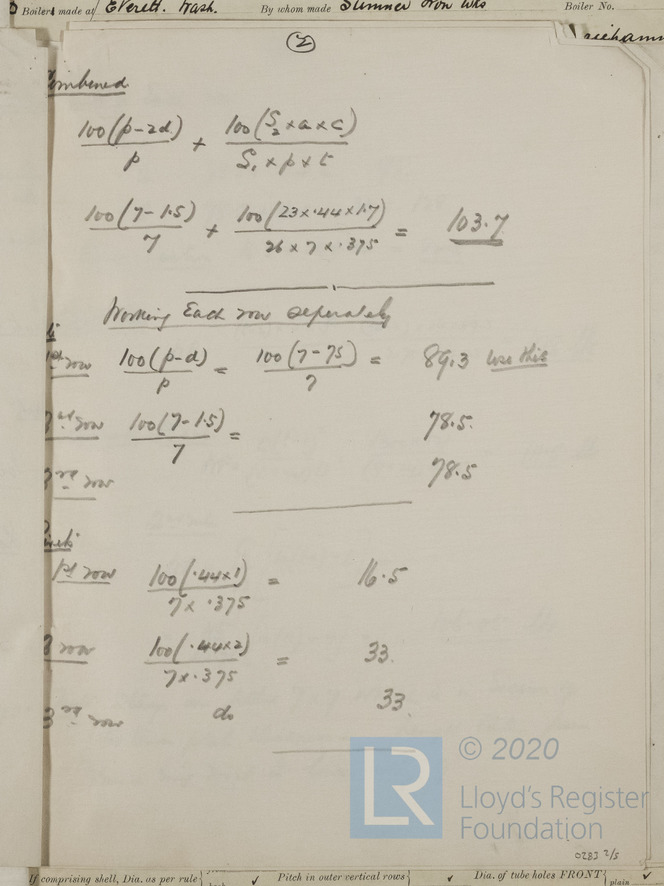 Boiler made at Everett. Wash. By whom made Sumner Iron Wks Boiler No.
②
Combined
100(p-2d)/p + 100(S₂×a×c)/S₁×p×t
100(7-1.5)/7 + 100(23×.44×1.7)/26×7×.375 = 103.7
Working Each row seperately
1st row 100(p-d)/p = 100(7-.75)/7 = 89.3 use this
2nd row 100(7-1.5)/7 = 78.5.
3rd row 78.5
1st row 100(.44×1)/7×.375 = 16.5
row 100(.44×2)/7×.375 = 33.
3rd row do 33
© 2020
LR
Lloyd's Register
Foundation
0283 2/5
If comprising shell, Dia. as per rule Pitch in outer vertical rows Dia. of tube holes FRONT
plain